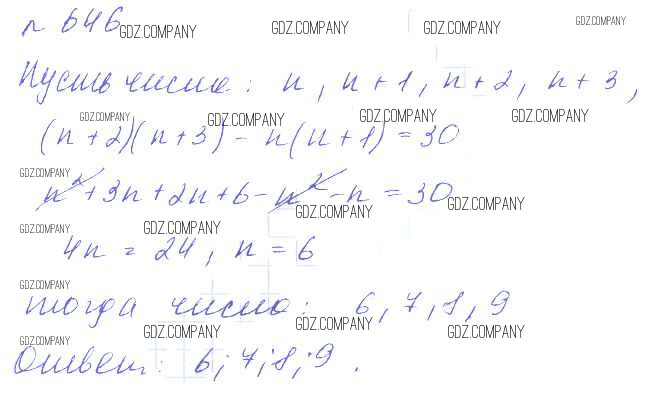 № 646 GDZ.COMPANY GDZ.COMPANY GDZ.COMPANY GDZ.COMPANY
Пусть числа: n, n+1, n+2, n+3,
GDZ.COMPANY GDZ.COMPANY GDZ.COMPANY GDZ.COMPANY
(n+2)(n+3) - n(n+1) = 30
GDZ.COMPANY
n²+3n+2n+6-n²-n = 30
GDZ.COMPANY GDZ.COMPANY
GDZ.COMPANY GDZ.COMPANY
4n = 24, n = 6
GDZ.COMPANY
тогда числа: 6, 7, 8, 9
GDZ.COMPANY GDZ.COMPANY GDZ.COMPANY
GDZ.COMPANY
Ответ: 6; 7; 8; 9.